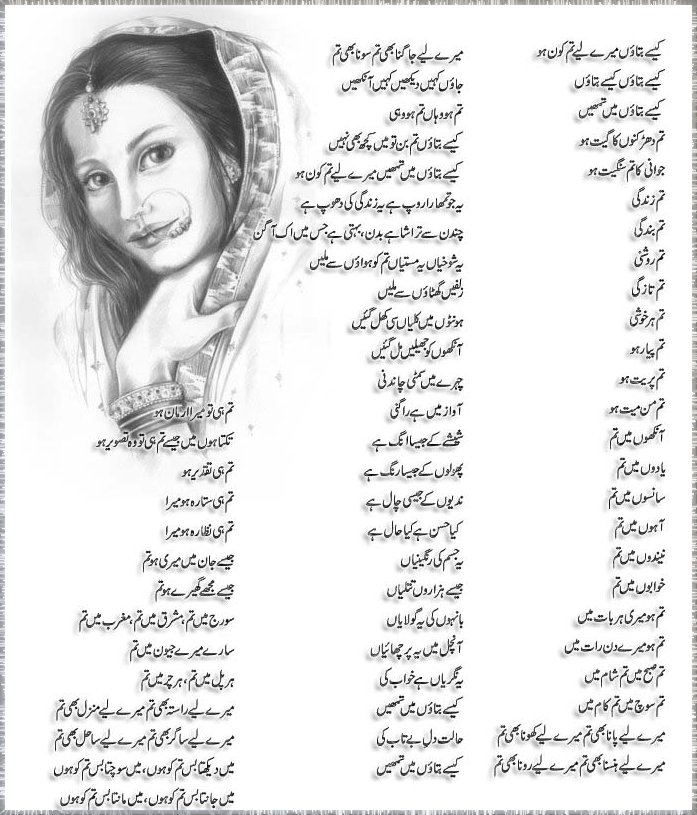 کیسے بتاؤں میرے لیے تم کون ہو
کیسے بتاؤں کیسے بتاؤں
کیسے بتاؤں میں تمھیں
تم دھڑکنوں کا گیت ہو
جوانی کا تم سنگیت ہو
تم زندگی
تم بندگی
تم روشنی
تم تازگی
تم ہر خوشی
تم پیار ہو
تم پریت ہو
تم من میت ہو
آنکھوں میں تم
یادوں میں تم
سانسوں میں تم
آہوں میں تم
نیندوں میں تم
خوابوں میں تم
تم ہو میری ہر بات میں
تم ہو میرے دن رات میں
تم صبح میں تم شام میں
تم سوچ میں تم کام میں
میرے لیے پانا بھی تم میرے لیے کھونا بھی تم
میرے لیے ہنسنا بھی تم میرے لیے رونا بھی تم
میرے لیے جاگنا بھی تم سونا بھی تم
جاؤں کہیں دیکھیں کہیں آنکھیں
تم ہو وہاں تم ہو وہی
کیسے بتاؤں تم بن تو میں کچھ بھی نہیں
کیسے بتاؤں میں تمھیں میرے لیے تم کون ہو
یہ جو تمھارا روپ ہے یہ زندگی کی دھوپ ہے
چندن سے تراشا ہے بدن، بہتی ہے جس میں اک آگن
یہ شوخیاں یہ مستیاں تم کو ہواؤں سے ملیں
زلفیں گھٹاؤں سے ملیں
ہونٹوں میں کلیاں سی کھل گئیں
آنکھوں کو جھیلیں مل گئیں
چہرے میں سمٹی چاندنی
آواز میں ہے راگنی
شیشے کے جیسا انگ ہے
پھولوں کے جیسا رنگ ہے
ندیوں کے جیسی چال ہے
کیا حسن ہے کیا حال ہے
یہ جسم کی رنگینیاں
جیسے ہزاروں تتلیاں
بانہوں کی یہ گولایاں
آنچل میں یہ پرچھائیاں
یہ نگریاں ہے خواب کی
کیسے بتاؤں میں تمھیں
حالت دلِ بے تاب کی
کیسے بتاؤں میں تمھیں
تم ہی تو میرا ارمان ہو
تکتا ہوں میں جیسے تم ہی تو وہ تصویر ہو
تم ہی تقدیر ہو
تم ہی ستارہ ہو میرا
تم ہی نظارہ ہو میرا
جیسے جان میں میری ہو تم
جیسے مجھے گھیرے ہو تم
سورج میں تم، مشرق میں تم، مغرب میں تم
سارے میرے جیون میں تم
ہر پل میں تم، ہر چر میں تم
میرے لیے راستہ بھی تم میرے لیے منزل بھی تم
میرے لیے ساگر بھی تم میرے لیے ساحل بھی تم
میں دیکھتا بس تم کو ہوں، میں سوچتا بس تم کو ہوں
میں جانتا بس تم کو ہوں، میں مانتا بس تم کو ہوں